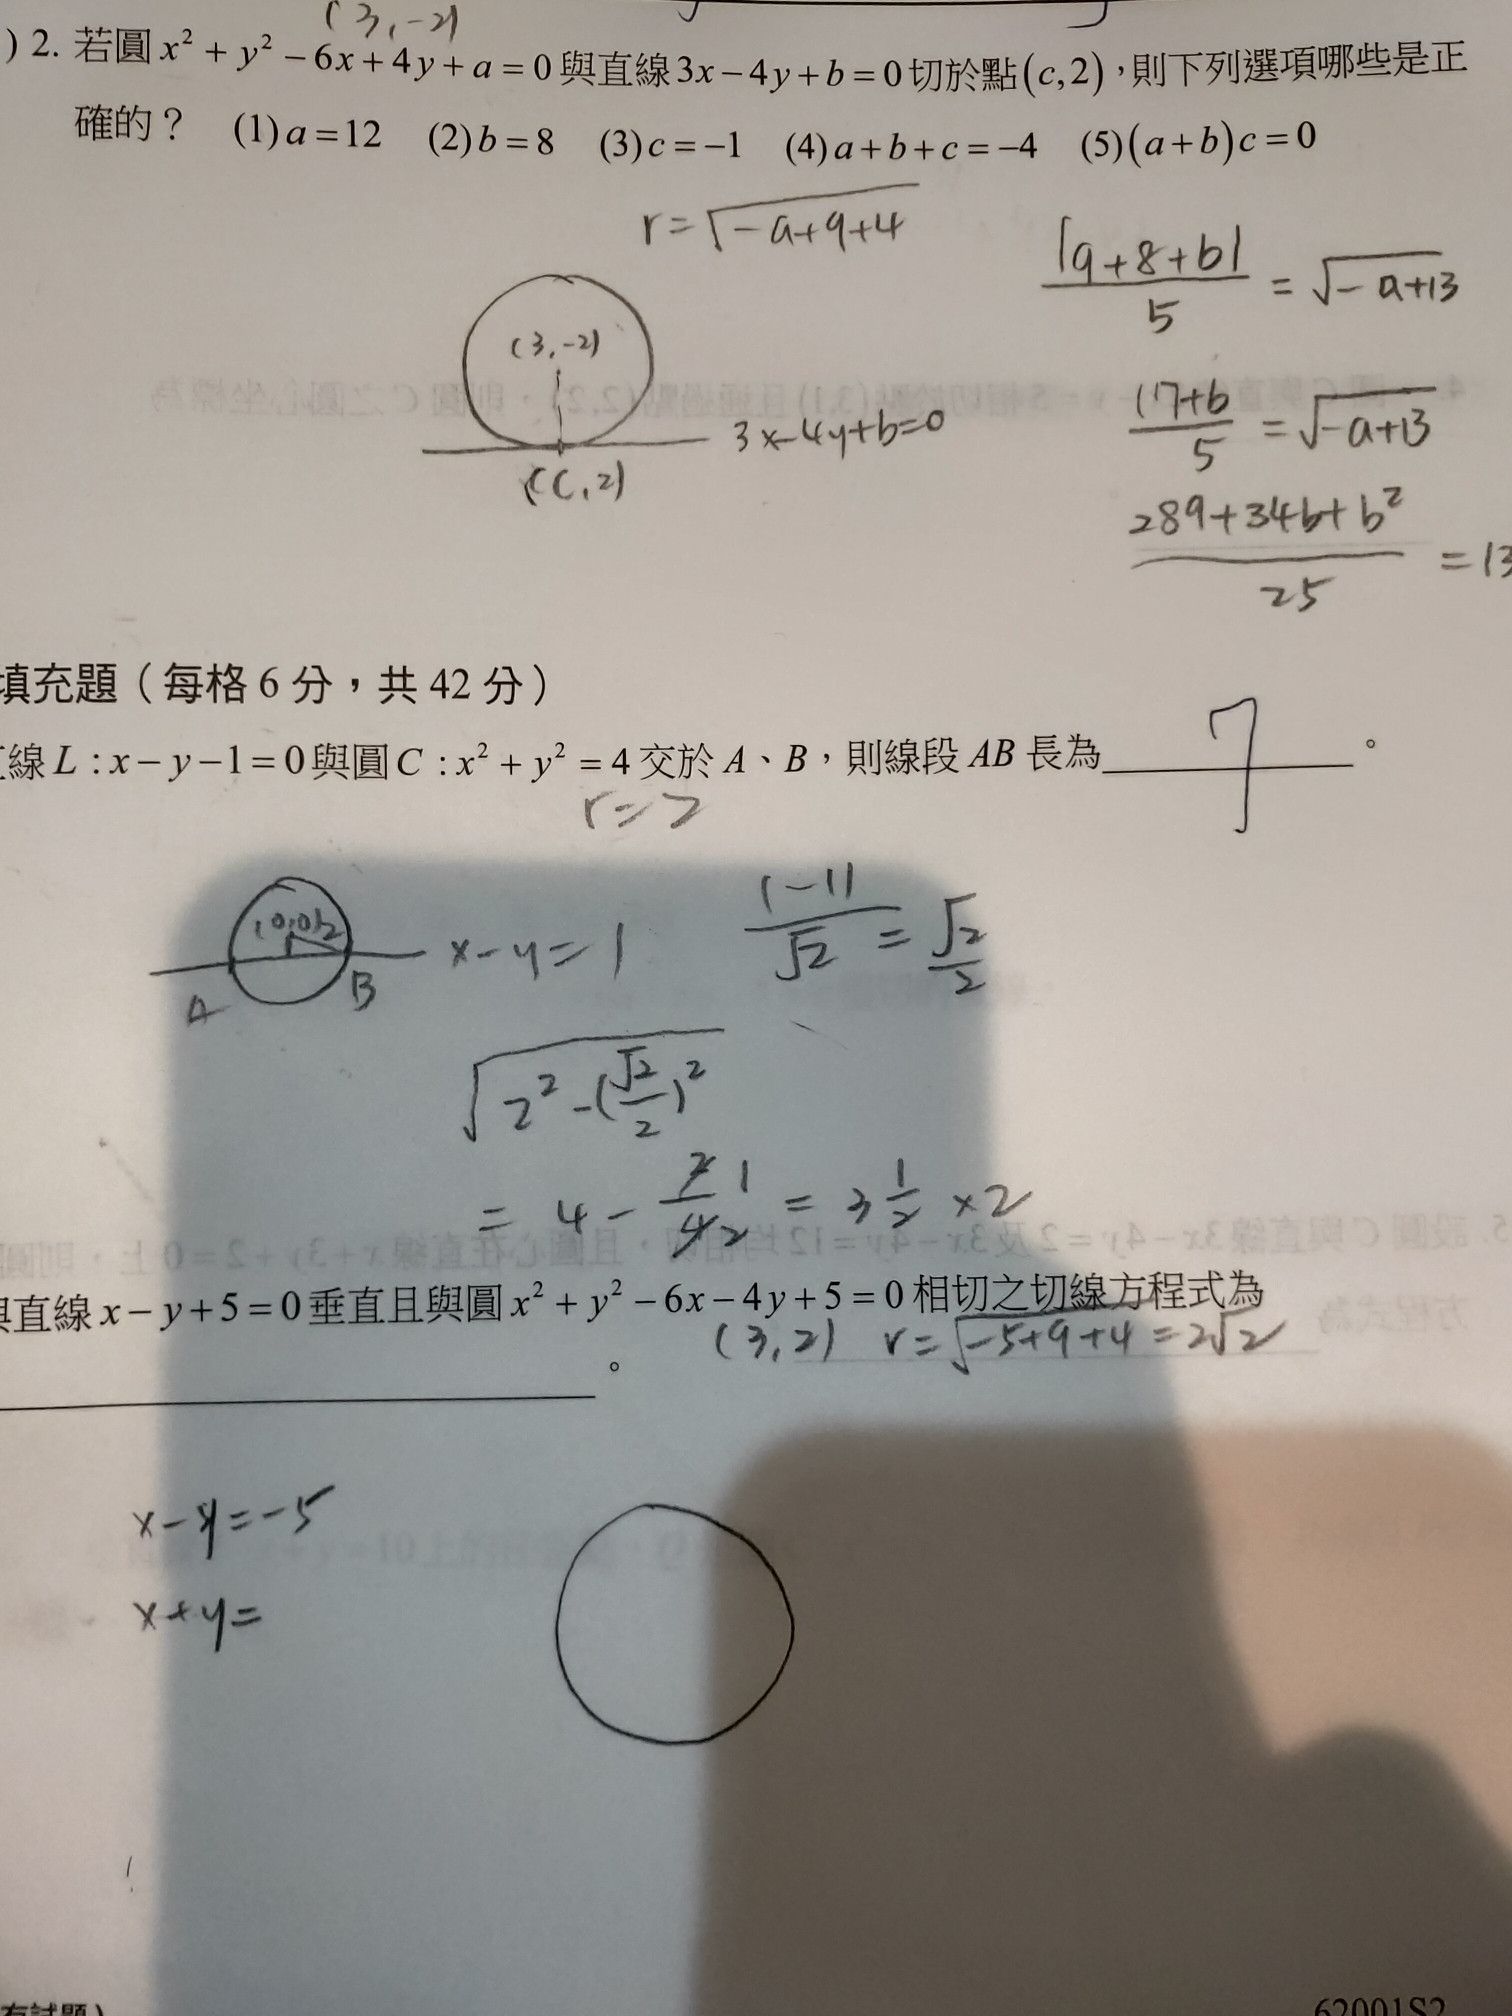 (3,-2)
) 2. 若圓 x² + y² − 6x + 4y + a = 0 與直線 3x − 4y + b = 0 切於點 (c, 2)，則下列選項哪些是正
確的？ (1) a = 12 (2) b = 8 (3) c = −1 (4) a + b + c = −4 (5) (a + b)c = 0
r = √(-a+9+4)
|9+8+b| / 5 = √(-a+13)
(3,-2)
3x-4y+b=0
(c,2)
17+b / 5 = √(-a+13)
289+34b+b² / 25 = 13
填充題（每格 6 分，共 42 分）
線 L : x − y − 1 = 0 與圓 C : x² + y² = 4 交於 A、B，則線段 AB 長為 7 。
r=2
(0,0) 2
A B
x-y=1
|-1| / √2 = √2/2
√(2²-(√2/2)²)
= 4 - 2/4 1/2 = 3 1/2 ×2
直線 x − y + 5 = 0 垂直且與圓 x² + y² − 6x − 4y + 5 = 0 相切之切線方程式為
(3,2) r=√(-5+9+4)=2√2
。
x-y=-5
x+y=
有試題）
62001S2